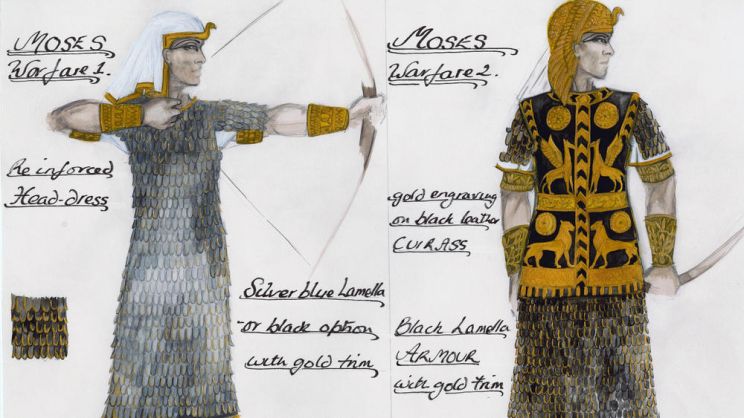 MOSES
Warfare 1.
Re inforced
Head-dress
Silver blue Lamella
or black option
with gold trim
MOSES
Warfare 2.
gold engraving
on black leather
CUIRASS
Black Lamella
ARMOUR
with gold trim